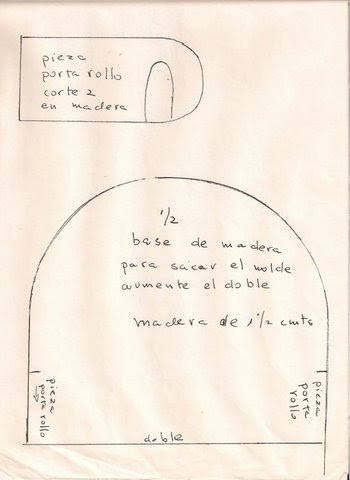 pieza
porta rollo
corte 2
en madera
1/2
base de madera
para sacar el molde
aumente el doble
madera de 1 1/2 cmts
pieza
porta rollo
pieza
porta
rollo
doble